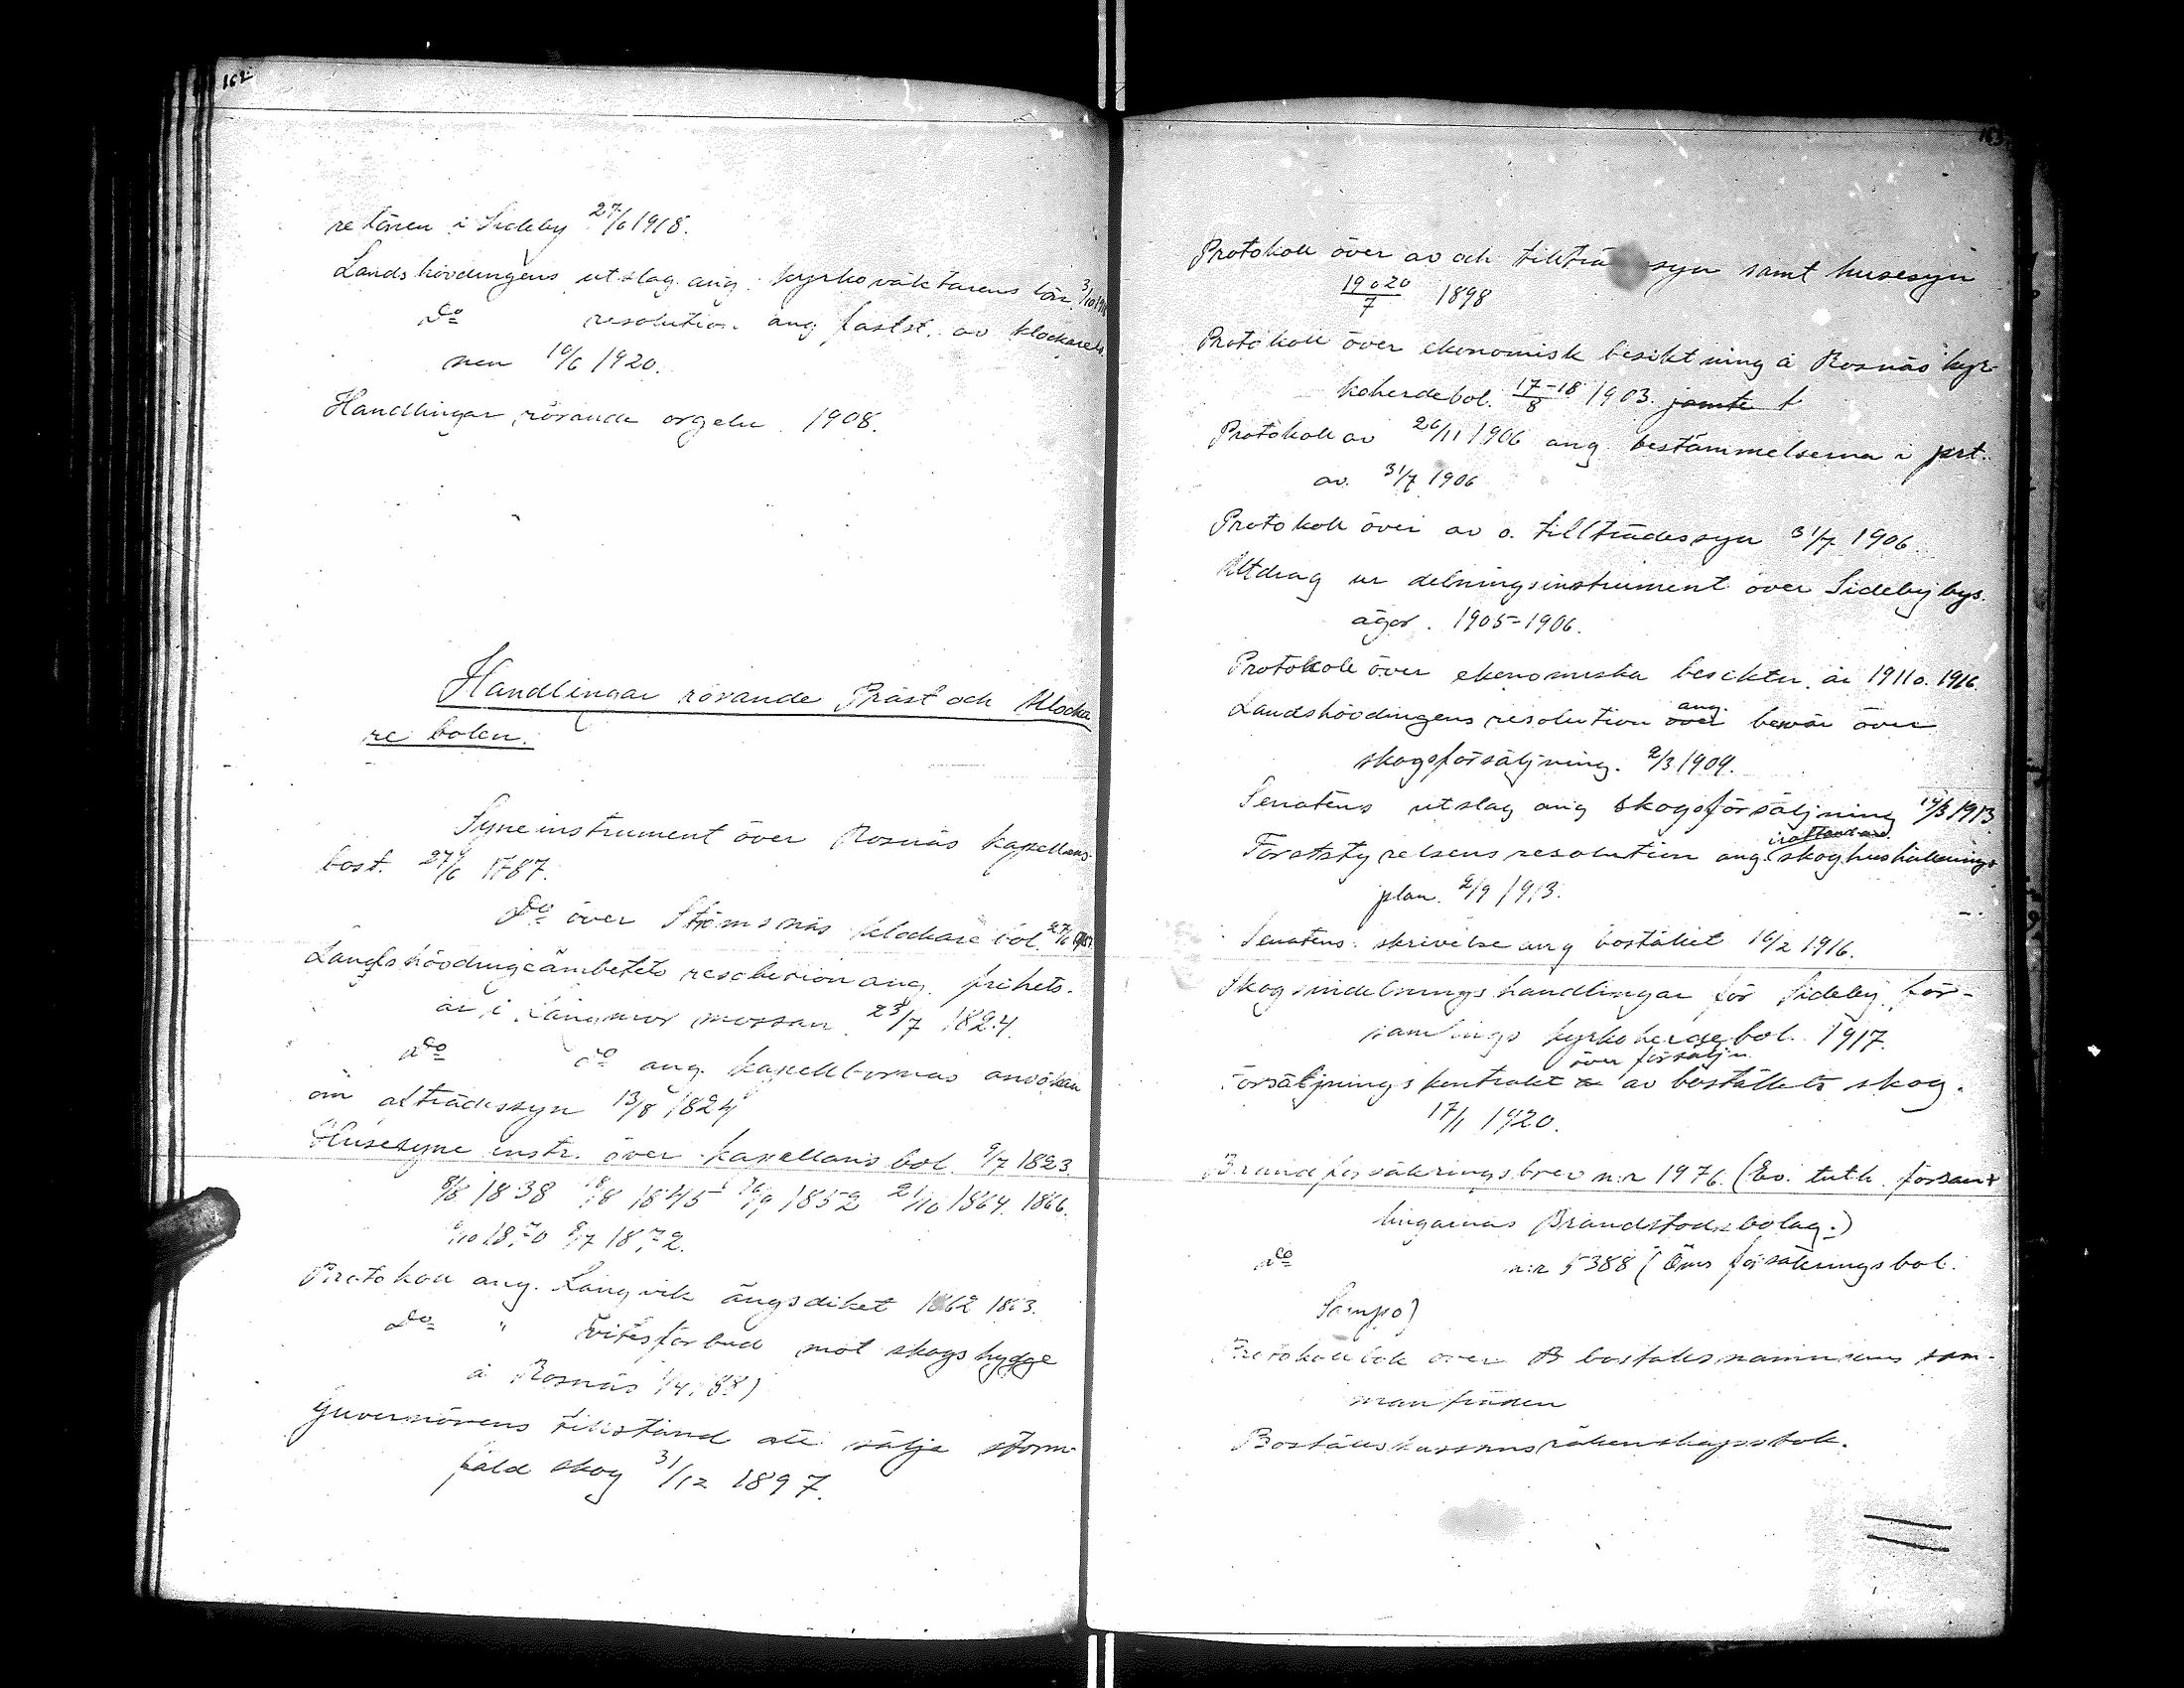 162
re lönen i Sideby 27/6 1918.
Landshövdingens utslag ang. kyrkoväktarens lön 3/10 19
Do resolution ang fastst. av klockarelö
nen 10/6 1920.
Handlingar rörande orgeln 1908.
Handlingar rörande Präst och Klocka
re bolen.
Syneinstrument över Rosnäs kapellans
bost. 27/6 1787.
Do över Strömsnäs klockare bol. 27/6
Landshövdingeämbetets resolution ang. frihets-
år i Långmor mossan 23/7 1824.
Do do ang. kapellbornas ansökan
om afträdessyn 13/8 1824
Husesyne instr. över kapellans bol. 9/7 1823.
8/8 1838 1845 1852 21/10 1864. 1866.
/10 1870 9/7 1872.
Protokoll ang. Långvik ängsdiket 1862 1863.
Do " vitesförbud mot skogshygge
å Rosnäs
Guvernörens tillstånd att sälja storm-
fäld skog 31/12 1897.
163
Protokoll över av och tillträ syn samt husesyn
19 o 20/7 1898
Protokoll över ekonomisk besiktning å Rosnäs kyr-
koherdebol. 17-18/8 1903. jämte t
Protokoll av 26/11 1906 ang bestämmelserna i prt.
av. 31/7 1906
Protokoll över av o. tillträdessyn 31/7 1906.
Utdrag ur delningsinstrument över Sideby bys
ägor. 1905-1906.
Protokoll över ekonomiska besiktn. år 1911 o. 1916.
Landshövdingens resolution över ang. besvär över
skogsförsäljning. 2/3 1909.
Senatens utslag ang skogsförsäljning 14/3 1913.
Forststyrelsens resolution ang. skoghushållnings-
plan. 2/9 1913.
Senatens skrivelse ang bostället 16/2 1916.
Skogsindelningshandlingar för Sideby för-
samlings kyrkoherdebol. 1917.
över försäljn.
Försäljningskontrakt av boställets skog.
17/1 1920.
Brandförsäkringsbrev n:r 1976. (Ev. luth. försam
lingarnas Brandstodsbolag.)
do n:r 5388 (Öms försäkringsbol.
Sampo)
Protokollbok över boställsnämndens sam-
manträden
Boställskassans räkenskapsbok.